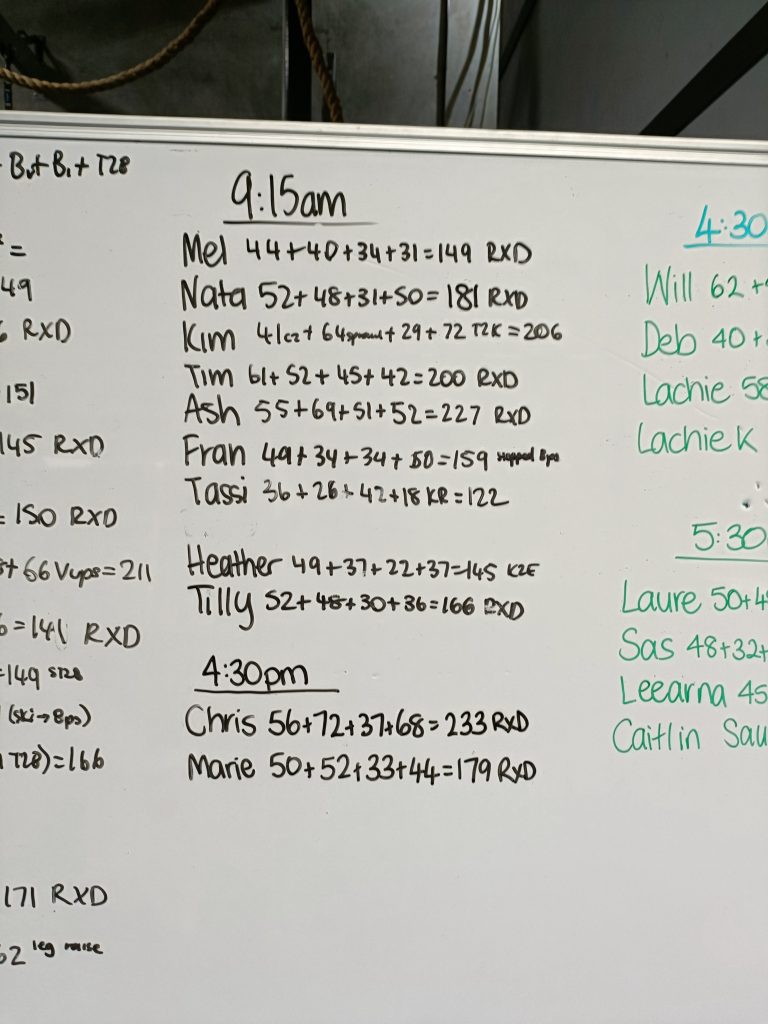 B₁ + T28
=
49
RXD
151
145 RXD
= 150 RXD
+ 66 Vups = 211
= 141 RXD
= 149
(ski → Bps)
T28) = 166
171 RXD
62 leg raise
9:15am
Mel 44+40+34+31=149 RXD
Nata 52+48+31+50= 181 RXD
Kim 41 + 64 + 29 + 72 T2K = 206
Tim 61+ 52 + 45+ 42=200 RXD
Ash 55+69+51+52=227 RXD
Fran 49+34+34+50=159
Tassi 36+26+42+18 KR=122
Heather 49+37+22+37=145 K2E
Tilly 52+48+30+36=166 RXD
4:30pm
Chris 56+72+37+68=233 RXD
Marie 50+52+33+44=179 RXD
4:30
Will 62+
Deb 40+
Lachie 58
Lachie K
5:30
Laure 50+4
Sas 48+32+
Leearna 45
Caitlin Sau